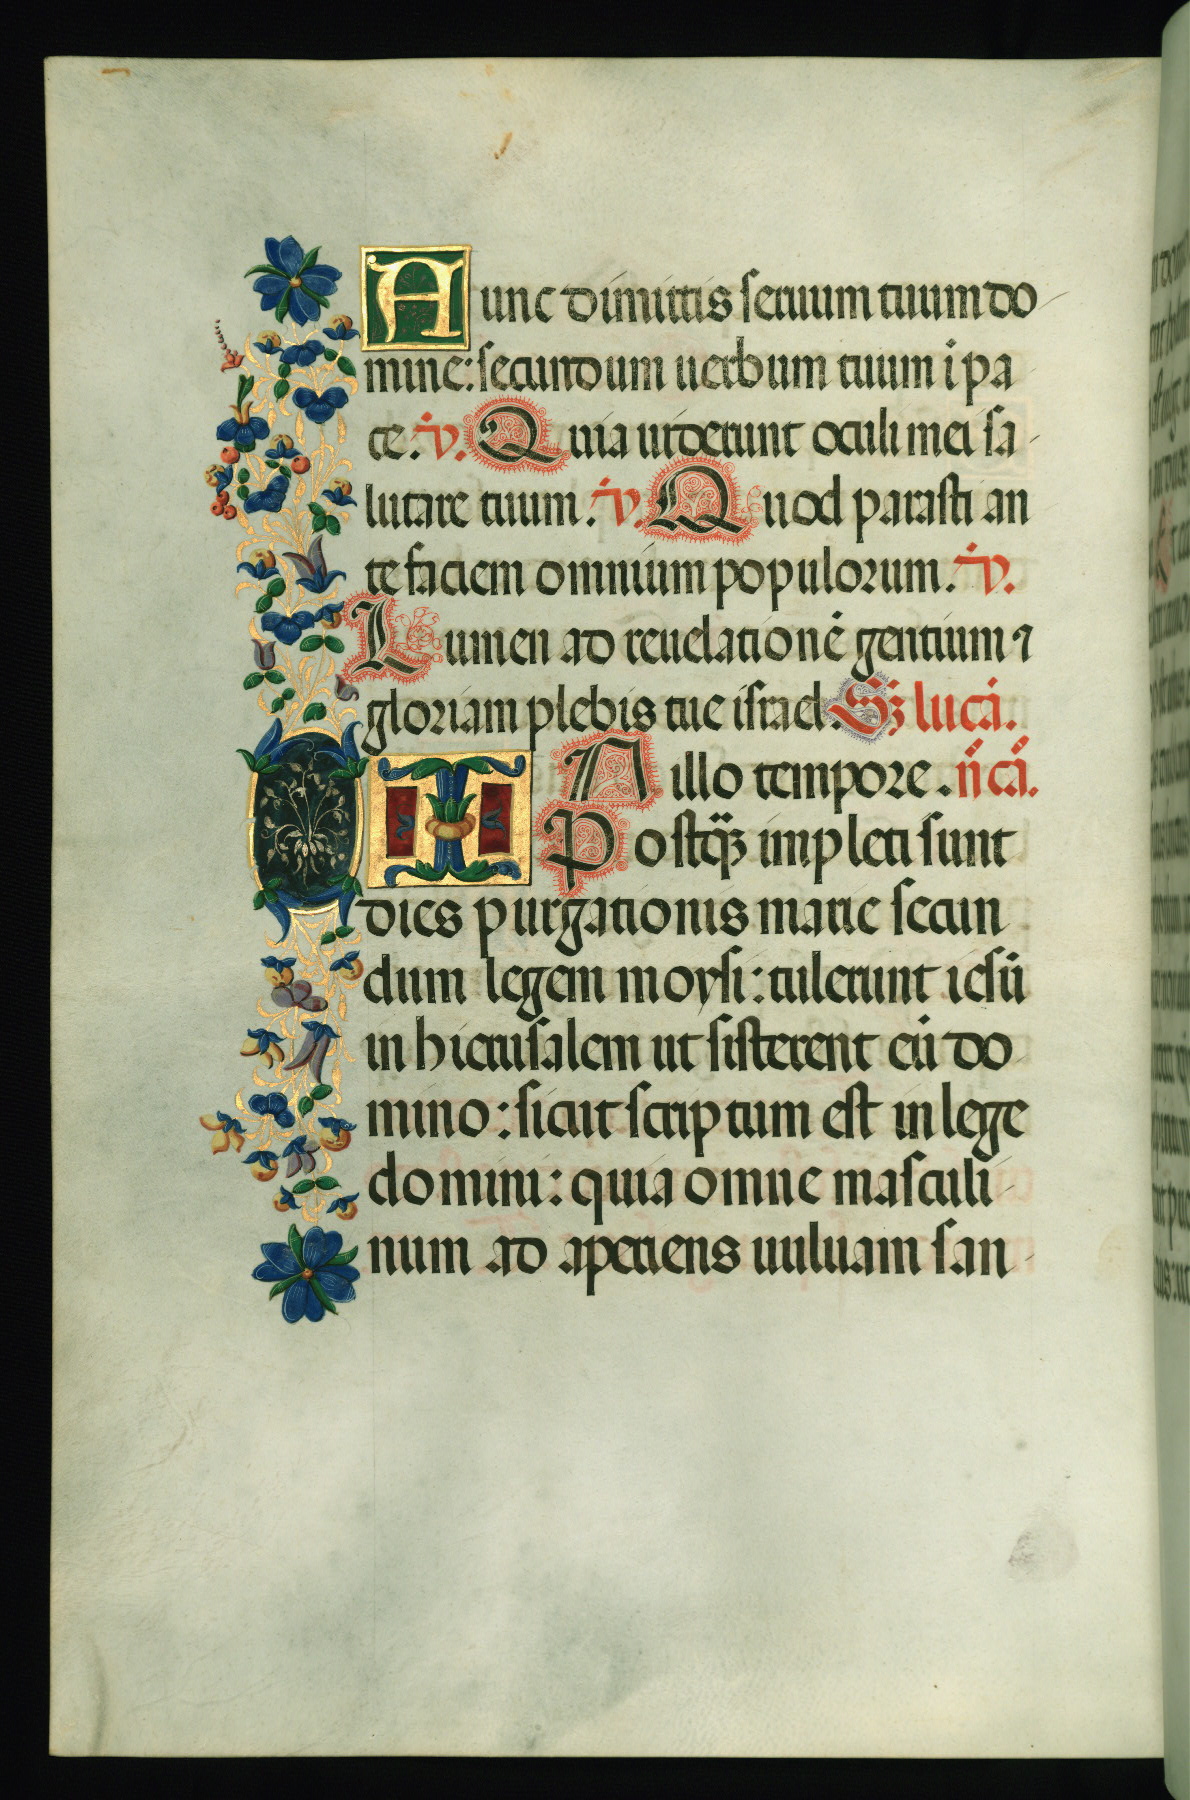 Nunc dimittis seruum tuum do
mine: secundum uerbum tuum i pa
ce. v. Quia uiderunt oculi mei sa
lutare tuum. v. Quod parasti an
te faciem omnium populorum. v.
Lumen ad reuelationē gentium ⁊
gloriam plebis tue israel. Sꝫ lucā.
IN illo tempore. ñ cā.
Postq̈ꝫ impleti sunt
dies purgationis marie secun
dum legem moysi: tulerunt iesū
in hierusalem ut sisterent eū do
mino: sicut scriptum est in lege
domini: quia omne masculi
num ad aperiens uuluam san